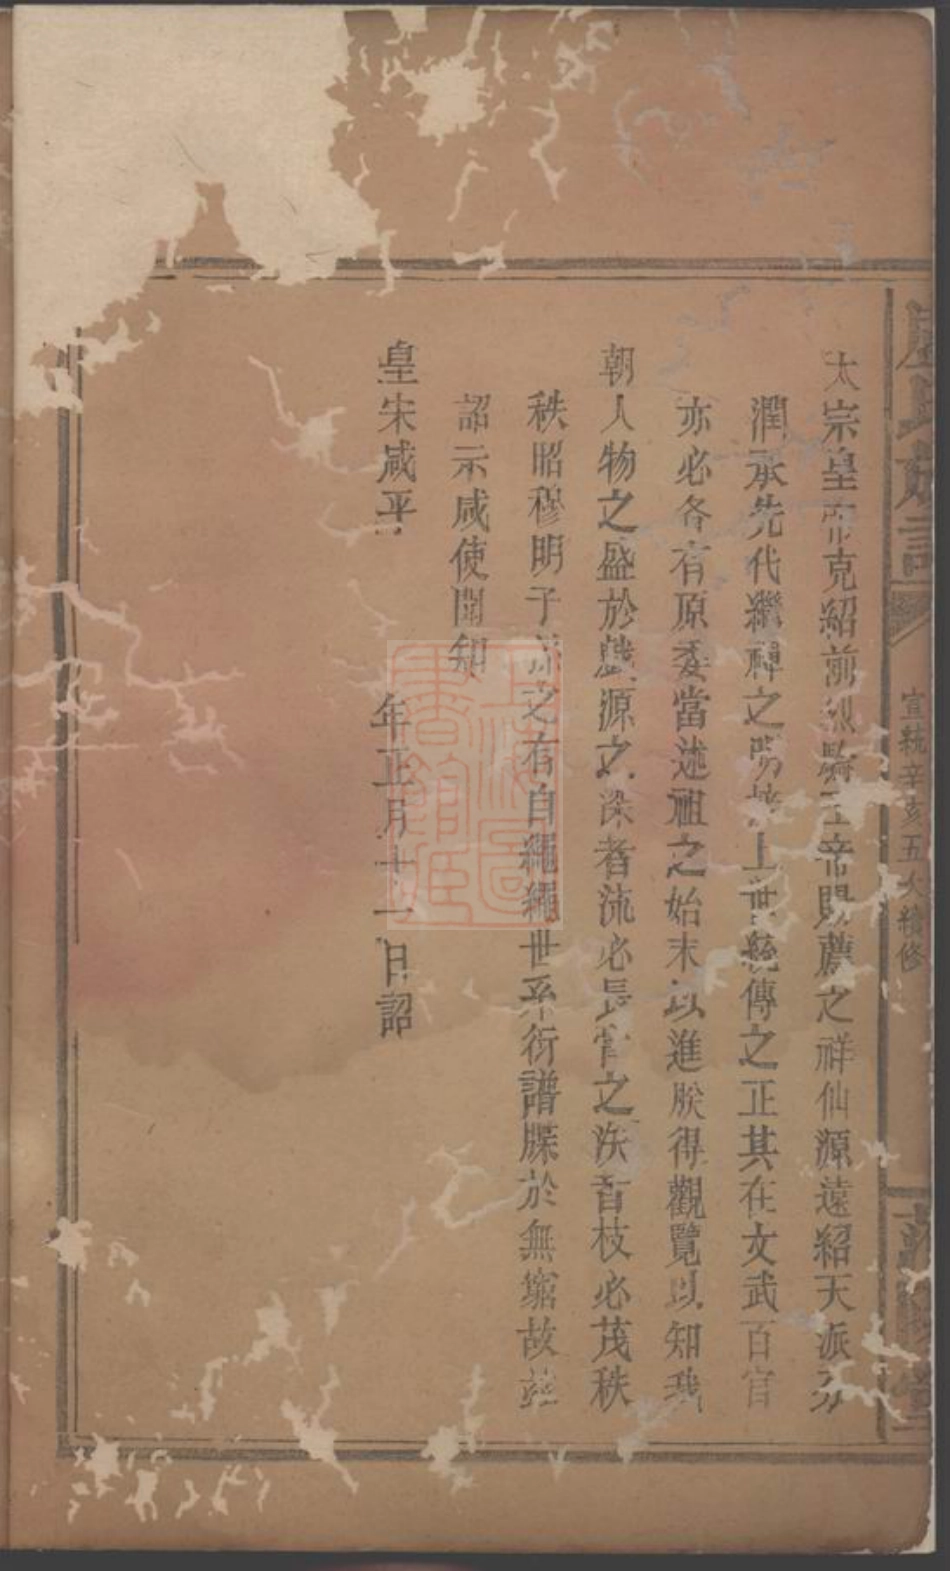 太宗皇帝克紹前烈騎王帝賜薦之祥仙源遠紹天派分
潤承先代繼禪之 上世統傳之正其在文武百官
亦必各有原委當述祖之始末以進朕得觀覽以知我
朝人物之盛於戲源之深者流必長 之 者枝必茂秩
秩昭穆明子孫之有自繩繩世系衍譜牒於無窮故茲
詔示咸使聞知
皇宋咸平 年正月十一日詔
宣統辛亥五次續修